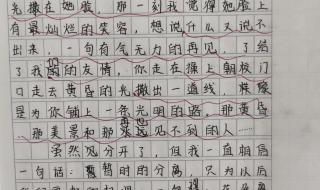 光撒在她脸，那一刻我觉得她脸上
有最灿烂的笑容，想说什么又说不
出来，一句有气无力的再见，了结
了我们的友情，你走在操上朝校门
口走去黄昏的光撒出一道线，
是为你铺上一条光明的路，那黄昏
…那美景和那永远也见不到的人……
虽然见分开了，但我一直相信
一句话：暂时的分离，只为以后